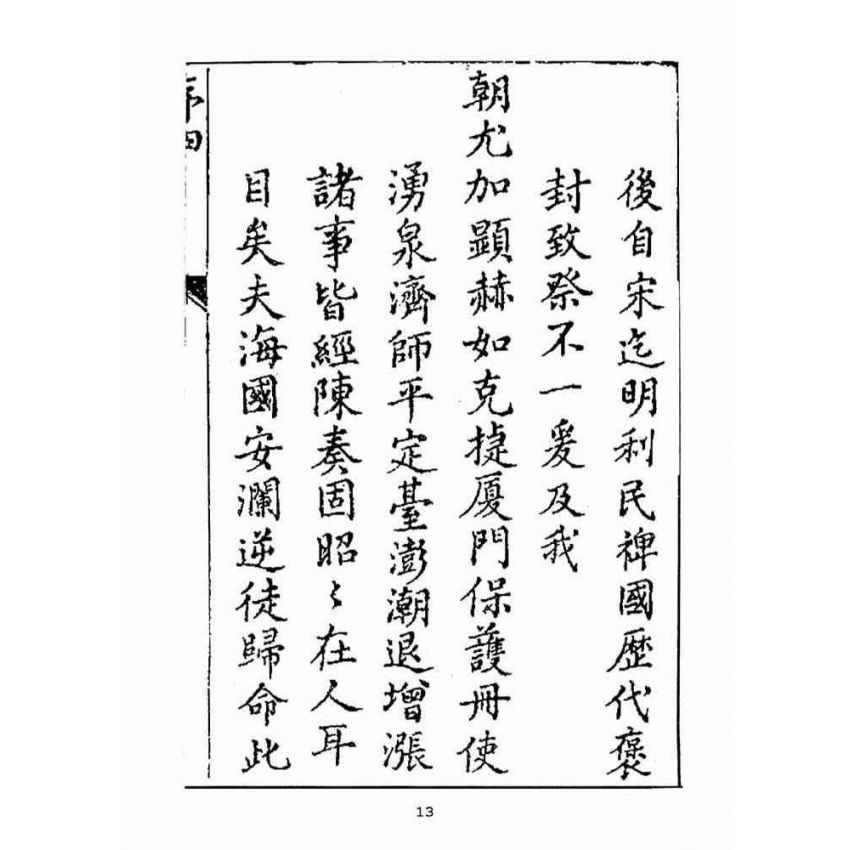 後自宋迄明利民裨國歷代褒
封致祭不一爰及我
朝尤加顯赫如克捷廈門保護冊使
湧泉濟師平定臺澎潮退增漲
諸事皆經陳奏固昭〻在人耳
目矣夫海國安瀾逆徒歸命此
序四
13